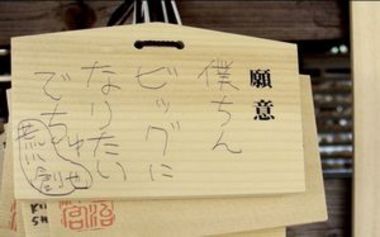 願意
僕ちん
ビッグに
なりたい
でちゅ